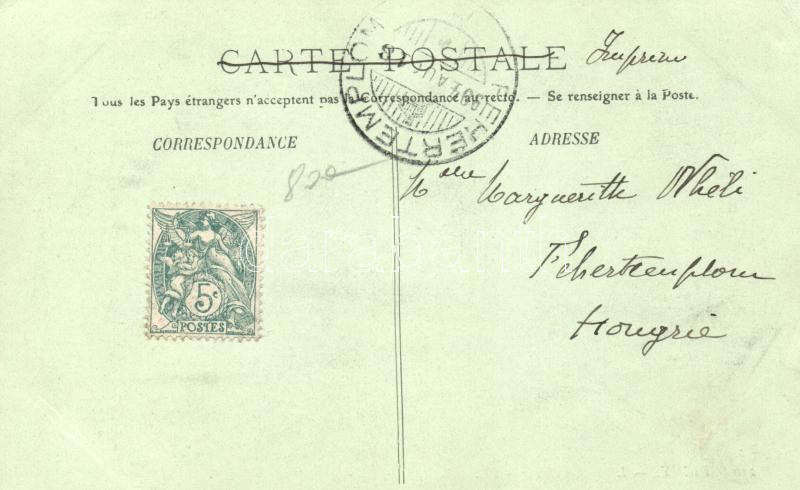 CARTE POSTALE Imprimé
Tous les Pays étrangers n'acceptent pas la Correspondance au recto. — Se renseigner à la Poste.
CORRESPONDANCE
ADRESSE
FEJÉRTEMPLOM
AUG
820
Melle Marguerith
Fehertemplom
Hongrie
5c
POSTES